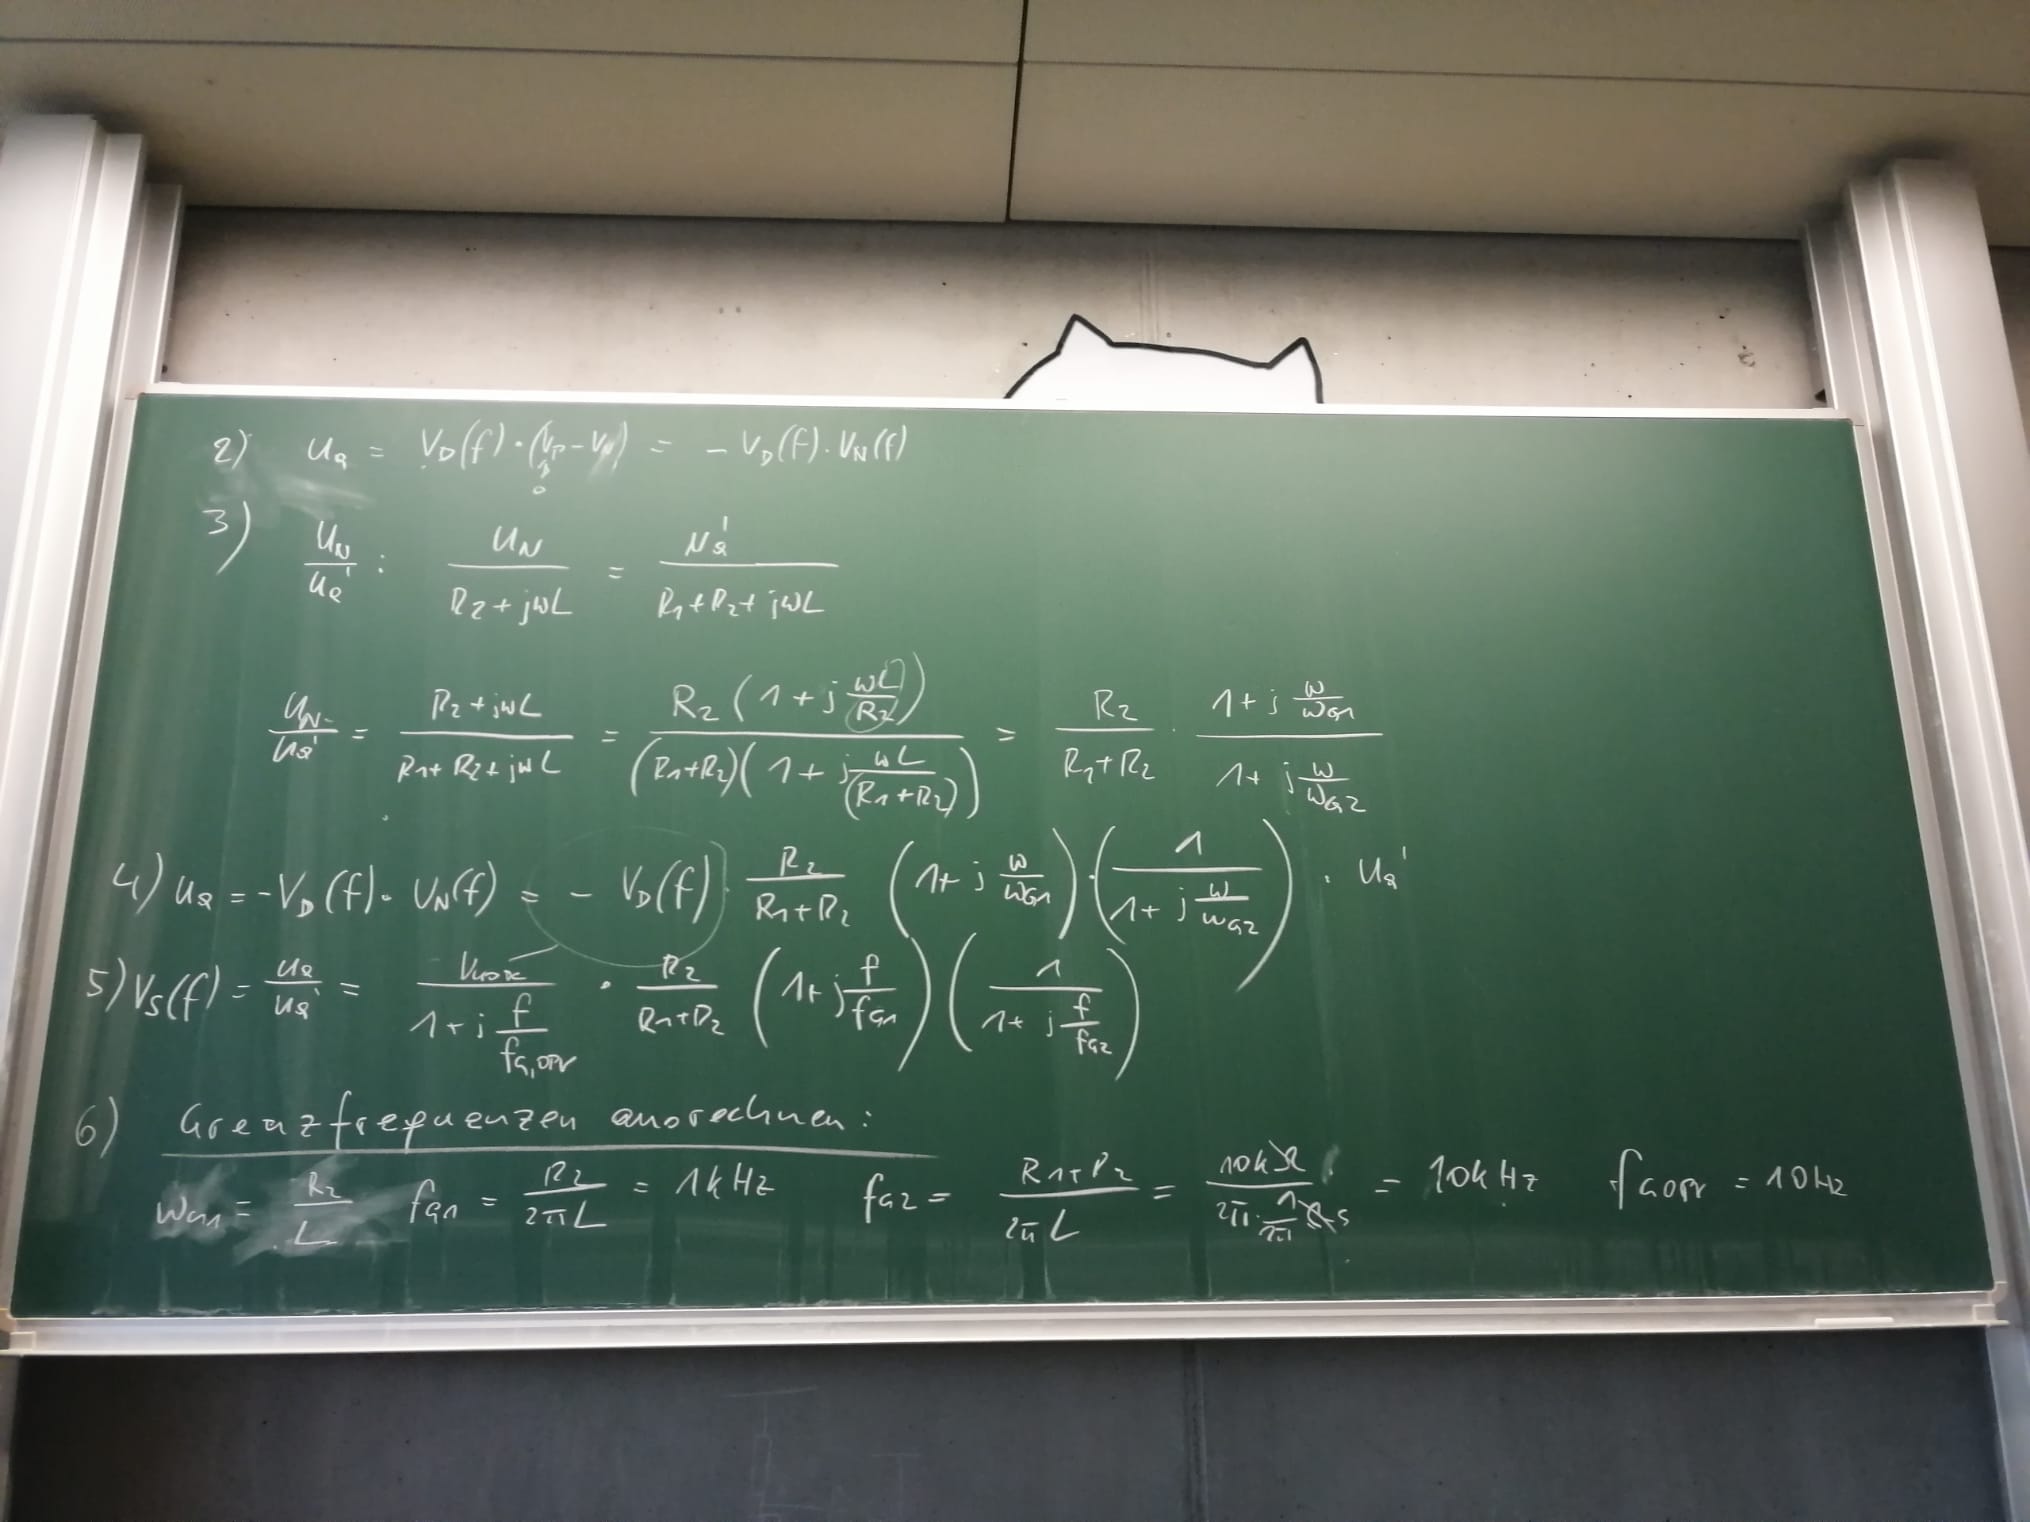 2) Ua = VD(f)·(Vp-VN) = - VD(f)·VN(f)
0
3) UN/Ua' : UN/(R2+jωL) = Ua'/(R1+R2+jωL)
UN/Ua' = (R2+jωL)/(R1+R2+jωL) = R2(1+j ωL/R2)/((R1+R2)(1+j ωL/(R1+R2))) = R2/(R1+R2) · (1+j ω/ωG1)/(1+j ω/ωG2)
4) Ua = -VD(f)· UN(f) = - VD(f) · R2/(R1+R2) (1+j ω/ωG1)·(1/(1+j ω/ωG2)) · Ua'
5) VS(f) = Ua/Ua' = Vmax/(1+j f/fG,OPV) · R2/(R1+R2) (1+j f/fG1)(1/(1+j f/fG2))
6) Grenzfrequenzen ausrechnen:
ωG1 = R2/L fG1 = R2/2πL = 1kHz fG2 = (R1+R2)/2πL = 10kΩ/(2π·1/2π Ωs) = 10kHz fGOPV = 10Hz